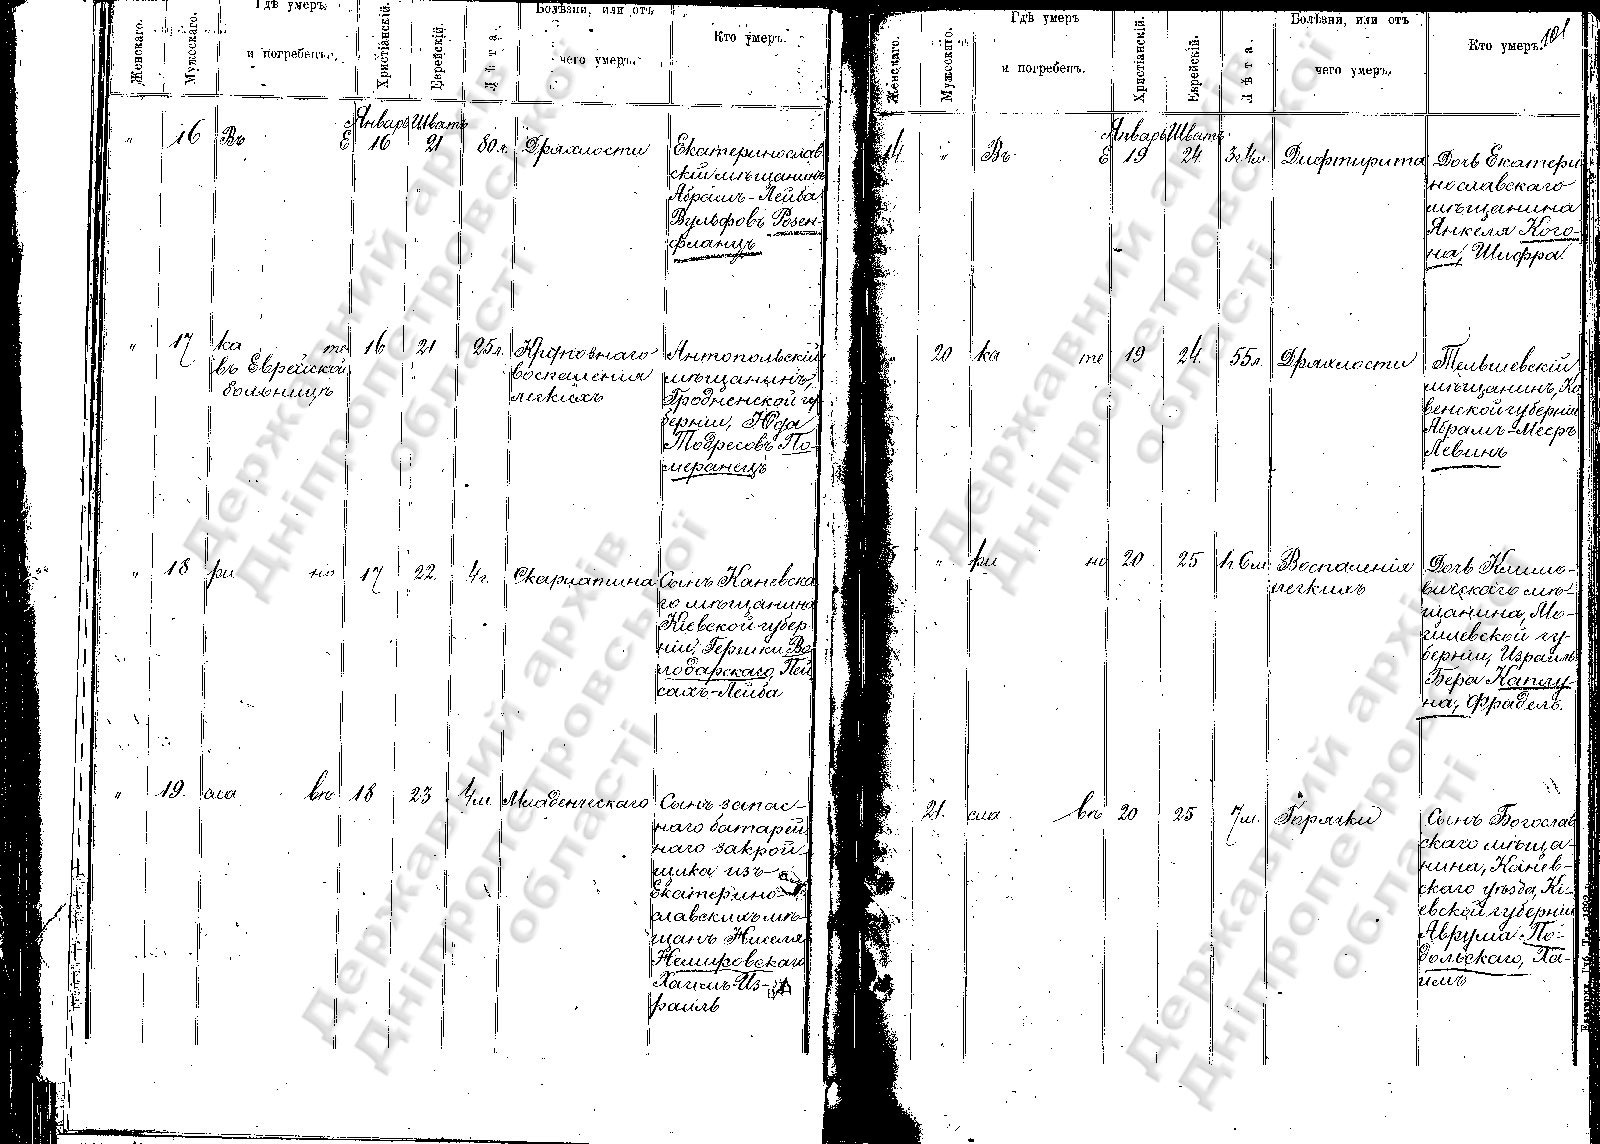 Женскаго.
Мужсскаго.
Гдѣ умеръ
и погребенъ.
Христіанскій.
Еврейскій.
Лѣта.
Болѣзни, или отъ
чего умеръ.
Кто умеръ.
Январь Шватъ
" 16 Въ Е 16 21 80 л. Дряхлости
Екатеринослав
скій мѣщанинъ
Абрамъ-Лейба
Вульфовъ Розен-
фланцъ
" 17 ка те 16 21 25 л. Крупознаго
въ Еврейской
больницѣ
воспаленія
легкихъ
Антопольскій
мѣщанинъ,
Гродненской гу
берніи, Юда
Тодресовъ По-
меранецъ
" 18 ри но 17 22. 4 г. Скарлатина
Сынъ Каневска
го мѣщанина
Кіевской губер-
ніи, Гершки Во
лодарскаго, Пей
сахъ-Лейба
" 19. сла въ 18 23 4 м Младенческаго
Сынъ запас-
наго батарей
наго закрой-
щика изъ
Екатерино-
славскихъ мѣ-
щанъ Хиселя
Немировскаго
Хаимъ-Из-
раиль
Женскаго.
Мужсскаго.
Гдѣ умеръ
и погребенъ.
Христіанскій.
Еврейскій.
Лѣта.
Болѣзни, или отъ
чего умеръ.
Кто умеръ.
101
Январь Шватъ
14. " Въ Е 19 24. 3 г. 4 м. Дифтирита
Дочь Екатери
нославскаго
мѣщанина
Янкеля Кого-
на, Шифра
" 20 ка те 19 24. 55 л. Дряхлости
Тельшевскій
мѣщанинъ, Ко
венской губерніи
Абрамъ-Мееръ
Левинъ
" ри но 20 25 1 г. 6 м Воспаленія
легкихъ
Дочь Климо-
вичскаго мѣ-
щанина, Мо-
гилевской гу-
берніи, Израиль
Бера Каплу-
на, Фрадель.
21. сла въ 20 25 7 м. Горячки
Сынъ Богослав
скаго мѣща-
нина, Канев-
скаго уѣзда, Кі-
евской губерніи
Аврума По-
дольскаго, Ха-
имъ
Державний архів
Дніпропетровської
області
Державний архів
Дніпропетровської
області
Державний архів
Дніпропетровської
області
Державний архів
Дніпропетровської
області